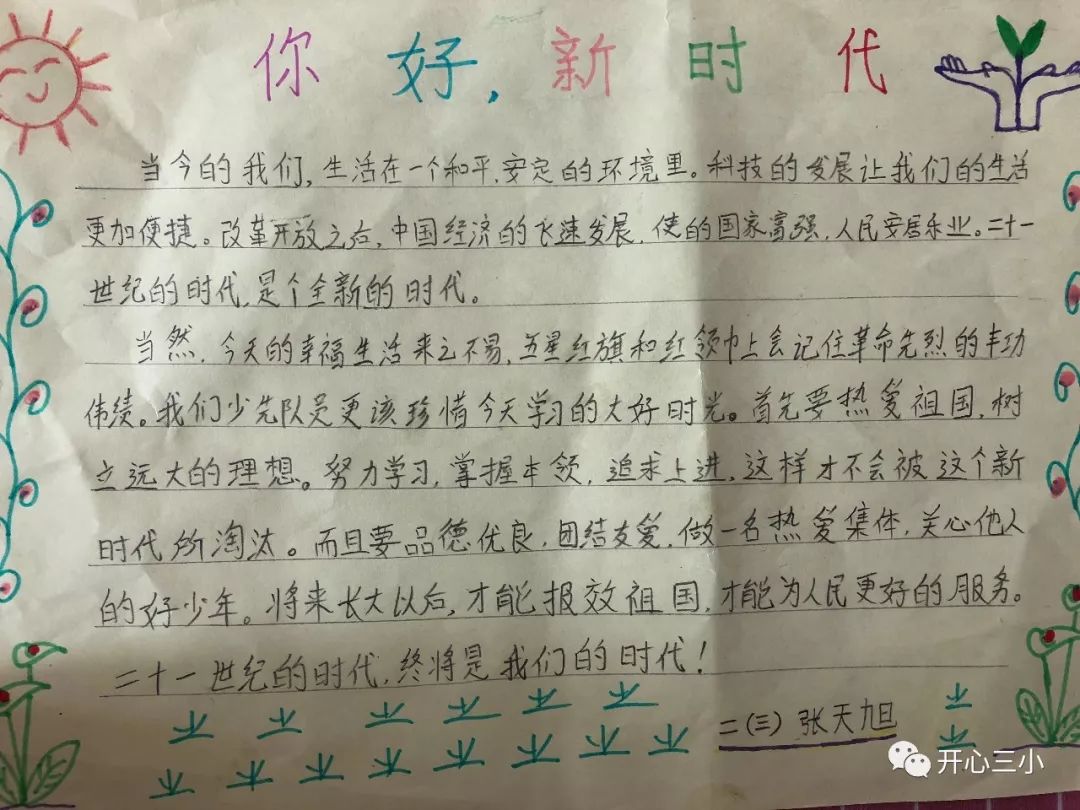 你好,新时代
当今的我们,生活在一个和平,安定的环境里。科技的发展让我们的生活
更加便捷。改革开放之后,中国经济的飞速发展,使的国家富强,人民安居乐业。二十一
世纪的时代,是个全新的时代。
当然,今天的幸福生活来之不易,五星红旗和红领巾上会记住革命先烈的丰功
伟绩。我们少先队员更该珍惜今天学习的大好时光。首先要热爱祖国,树
立远大的理想。努力学习,掌握本领,追求上进,这样才不会被这个新
时代所淘汰。而且要品德优良,团结友爱,做一名热爱集体,关心他人
的好少年。将来长大以后,才能报效祖国,才能为人民更好的服务。
二十一世纪的时代,终将是我们的时代!
二(三)张天旭
开心三小